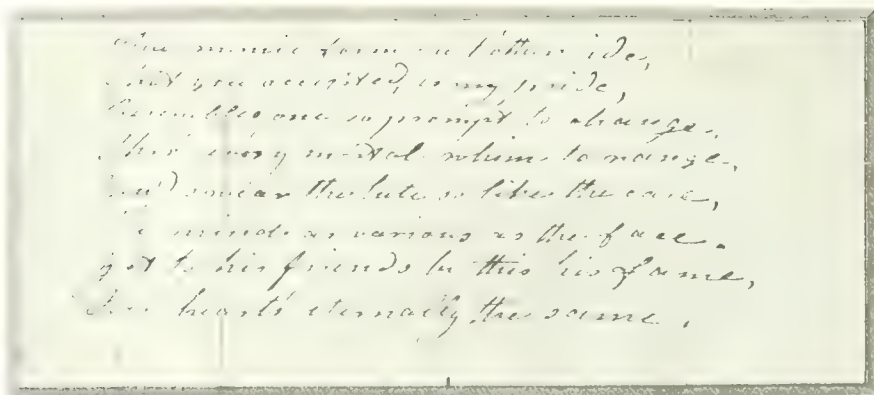 The mimic form on t'other side,
That you accepted, is my pride,
Resembles one so prompt to change,
Thro' every mortal whim to range,
You'd swear the lute so like the case,
The mind as various as the face.
yet to his friends be this his fame,
His heart's eternally the same.